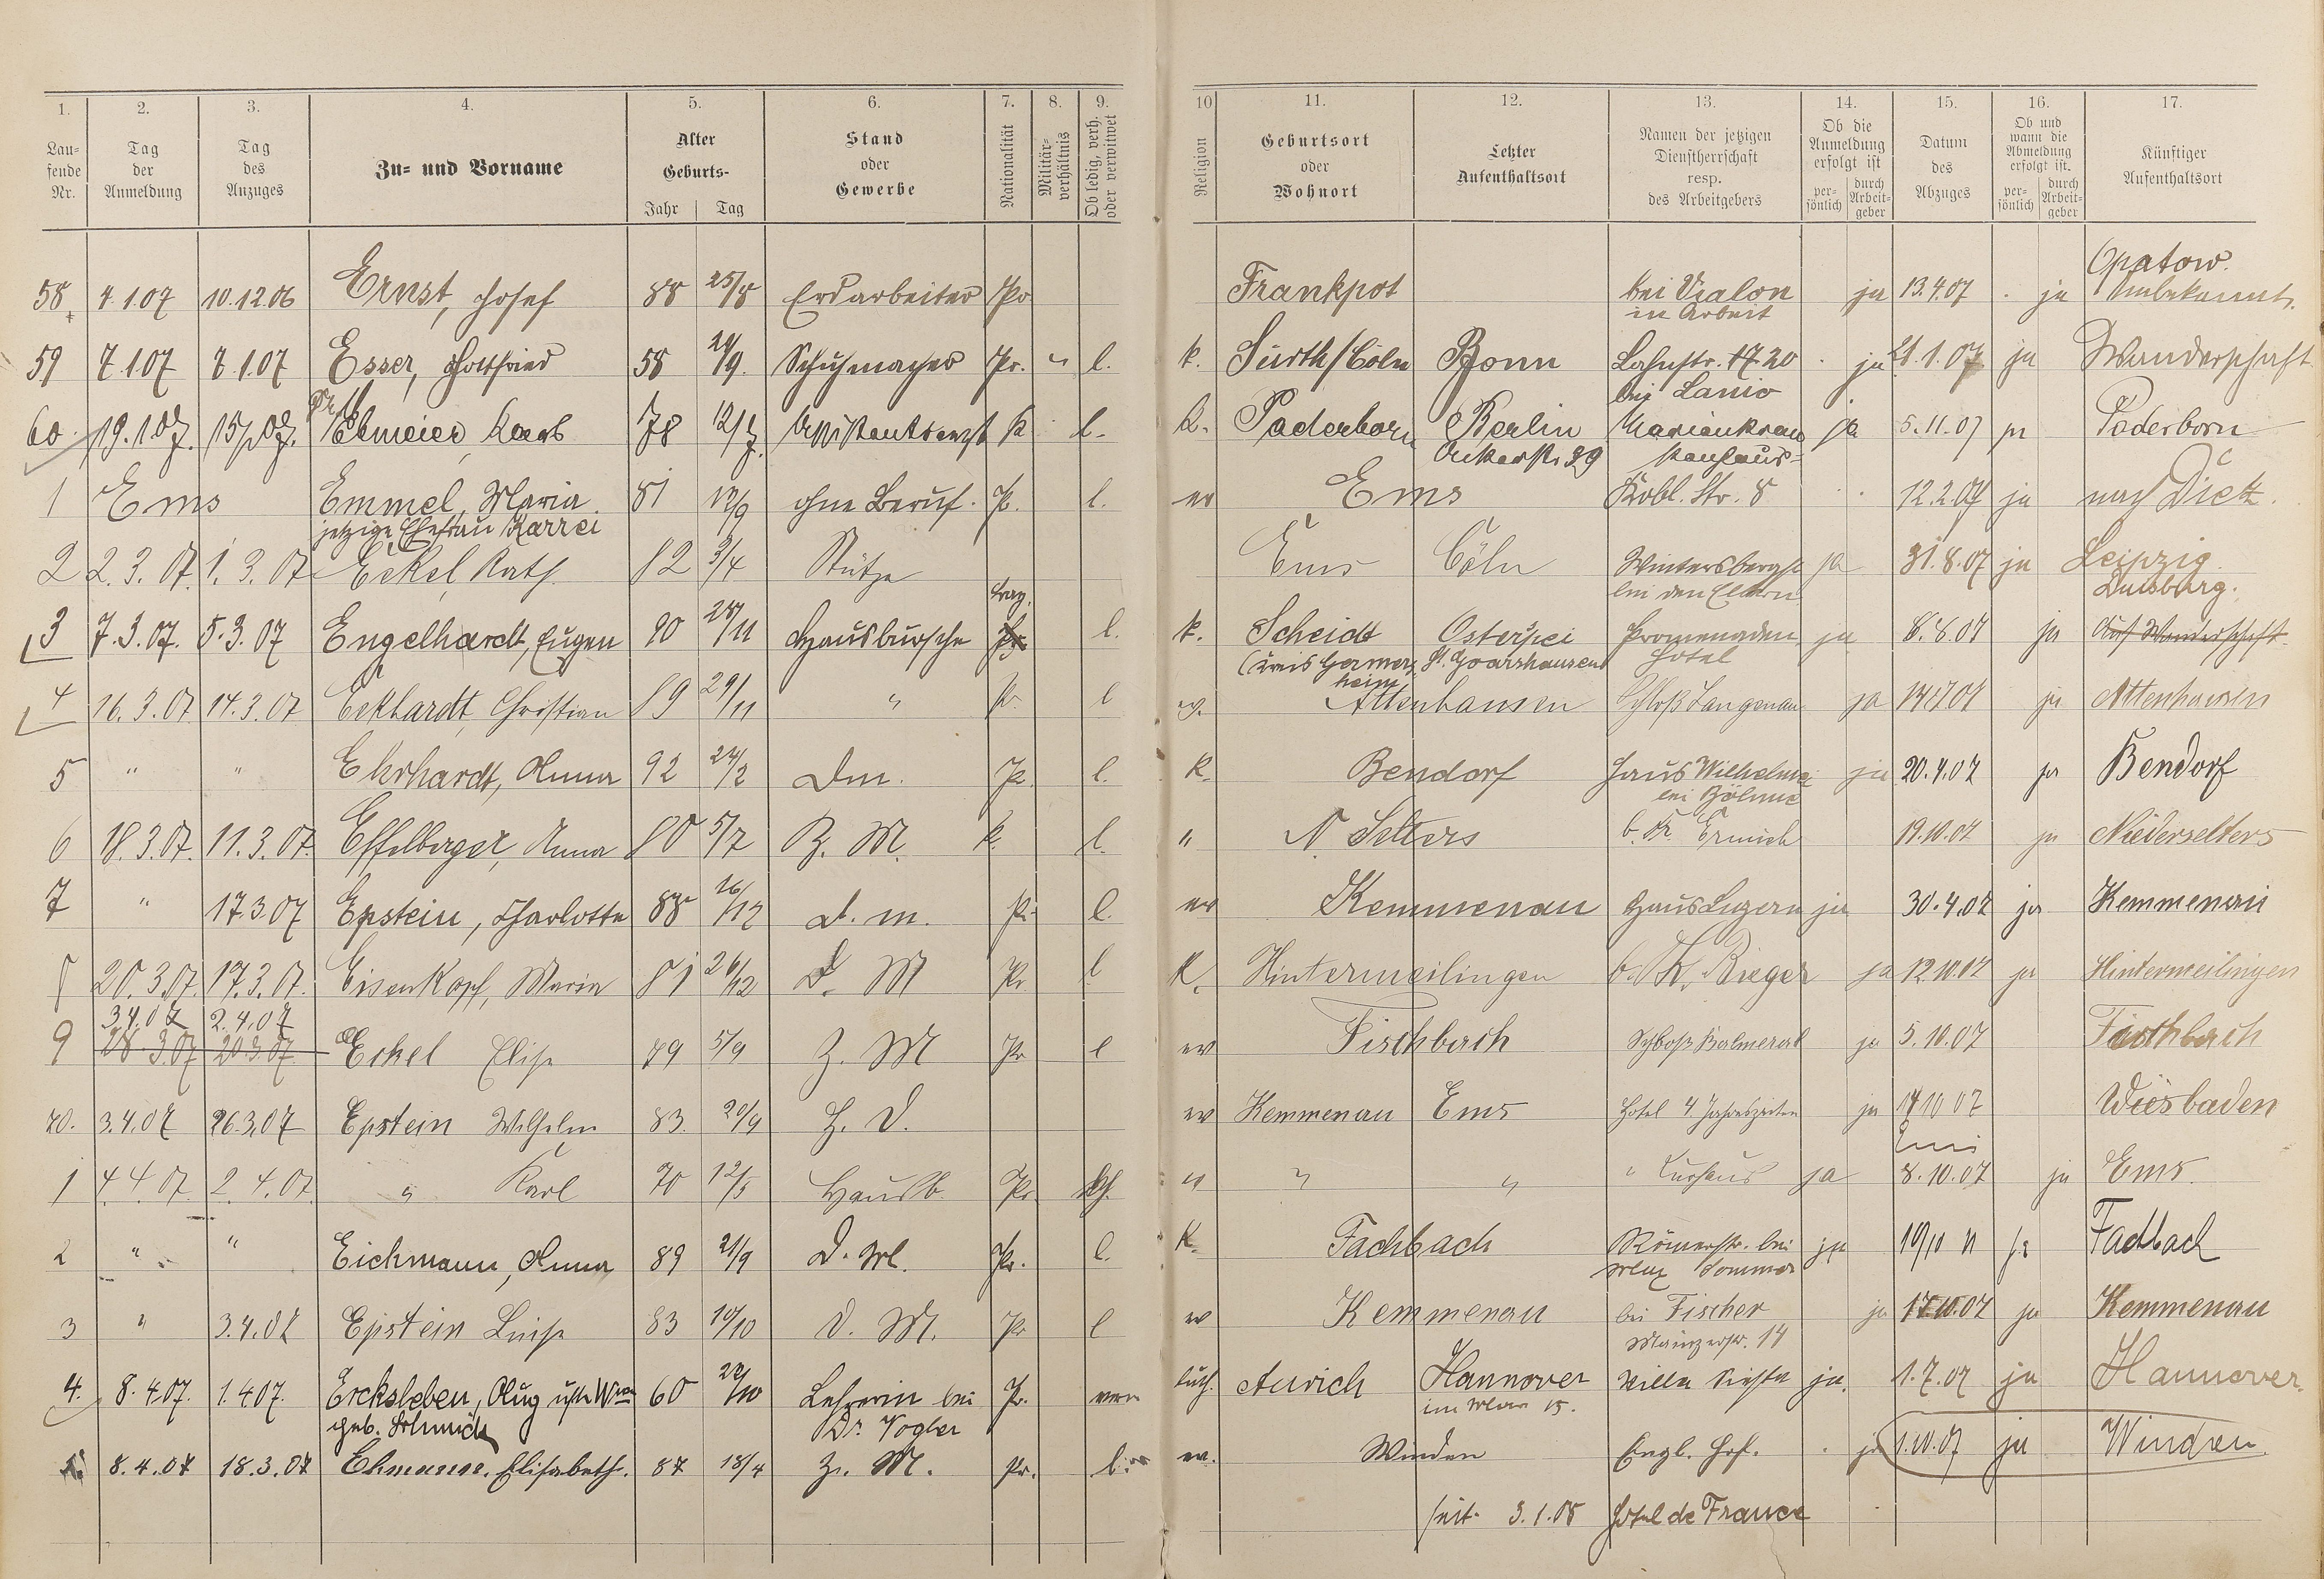 1. 2. 3. 4. 5. 6. 7. 8. 9. 10 11. 12. 13. 14. 15. 16. 17.
Laufende Nr. Tag der Anmeldung Tag des Anzuges Zu- und Vorname Alter Geburts- Jahr Tag Stand oder Gewerbe Nationalität Militärverhältnis Ob ledig, verh. oder verwitwet Religion Geburtsort oder Wohnort Letzter Aufenthaltsort Namen der jetzigen Dienstherrschaft resp. des Arbeitgebers Ob die Anmeldung erfolgt ist persönlich durch Arbeitgeber Datum des Abzuges Ob und wann die Abmeldung erfolgt ist. persönlich durch Arbeitgeber Künftiger Aufenthaltsort
Opatow.
58 4.1.07 10.12.06 Ernst, Josef 88 25/8 Erdarbeiter Pr Frankpot bei Vialon ja 13.4.07 ja Unbekannt.
in Arbeit
59 7.1.07 7.1.07 Esser, Gottfried 58 /9. Schuhmacher Pr. " l. k. Sürth/Cöln Bonn Lahnstr. 17.20 ja 21.1.07 ja Wanderschaft
bei Lanio
60 19.1.07. Karl 78 12/7. Assistentsarzt l. k. Paderborn Berlin Marienkran ja 5.11.07 ja Paderborn
29 kenhaus
1 Ems Emmel, Maria 81 l. ev Ems Kobl. Str. 8 12.2.07 ja nach Dietz.
jetzige Ehefrau Karrei
2 2.3.07. 1.3.07 Eckel, Kath. 82 3/4 Stütze Ems Cöln Wintersbergstr ja 31.8.07 ja Leipzig
bei den Eltern Duisburg.
3 7.3.07. 5.3.07 Engelhardt, Eugen 90 28/11 Hausbursche bay. Pr. l. k. Scheidt Osterspei Promenaden ja 8.6.07 ja Auf Wanderschaft
(Kreis Germersheim St. Goarshausen Hotel
4 16.3.07 14.3.07 Eckhardt, Christian 89 29/11 " Pr. l ev. Attenhausen Schloß Langenau ja ja Attenhausen
5 " " Ehrhardt, Anna 92 24/2 Dm. Pr. l. k. Bendorf Haus Wilhelma ja 20.4.07 ja Bendorf
bei Böhme
6 18.3.07. 11.3.07. Effelberger, Anna 80 5/7 Z. M. l. " N. Selters b. Fr. Ermisch 19.10.07 ja Niederselters
7 " 17.3.07 Epstein, Charlotte 88 16/12 d. m. Pr. l. ev Kemmenau Haus Luzern ja 30.4.07 ja Kemmenau
8 20.3.07. 17.3.07. Eisenkopf, Maria 81 26/12 D. M Pr. l k. Hintermeilingen b. Fr. Rieger ja 12.10.07 ja Hintermeilingen
3.4.07 2.4.07
9 28.3.07 20.3.07 Eckel Elise 79 5/9 Z. M Pr l ev Fischbach Schloß Balmoral ja 5.10.07 Fischbach
70. 3.4.07 26.3.07 Epstein Wilhelm 83. 20/9 H. D. ev Kemmenau Ems Hotel 4 Jahreszeiten ja 14 10 07 Wiesbaden
Ems
1 4.4.07. 2.4.07. " Karl 70 12/5 Hausb. Pr. " " " " Kurhaus ja 8.10.07 ja Ems.
2 " " Eichmann, Anna 89 21/9 D. M. Pr. l. k. Fachbach Römerstr. bei ja ja Fachbach
Max Sommer
3 " 3.4.07 Epstein Luise 83 10/10 D. M. Pr l ev Kemmenau bei Fischer ja 17.10.07 ja Kemmenau
Mainzerstr. 14
4. 8.4.07. 1.4.07. Ercksleben, Auguste Wwe 60 Lehrerin bei Pr. luth. Aurich Hannover Villa ja. 1.7.07 ja Hannover.
geb. Schmidt Dr. Vogler
8.4.07 18.3.07 Ehmann, Elisabeth. 87 18/4 Z. M. Pr. l. ev. Winden Engl. Hof. ja 1.10.07 ja Winden
seit 3.1.08 Hotel de France